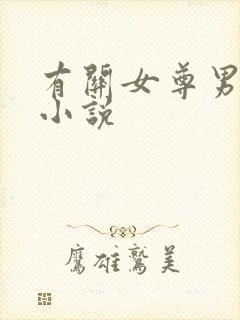 有關女尊男
小說
鷹雄鷙美